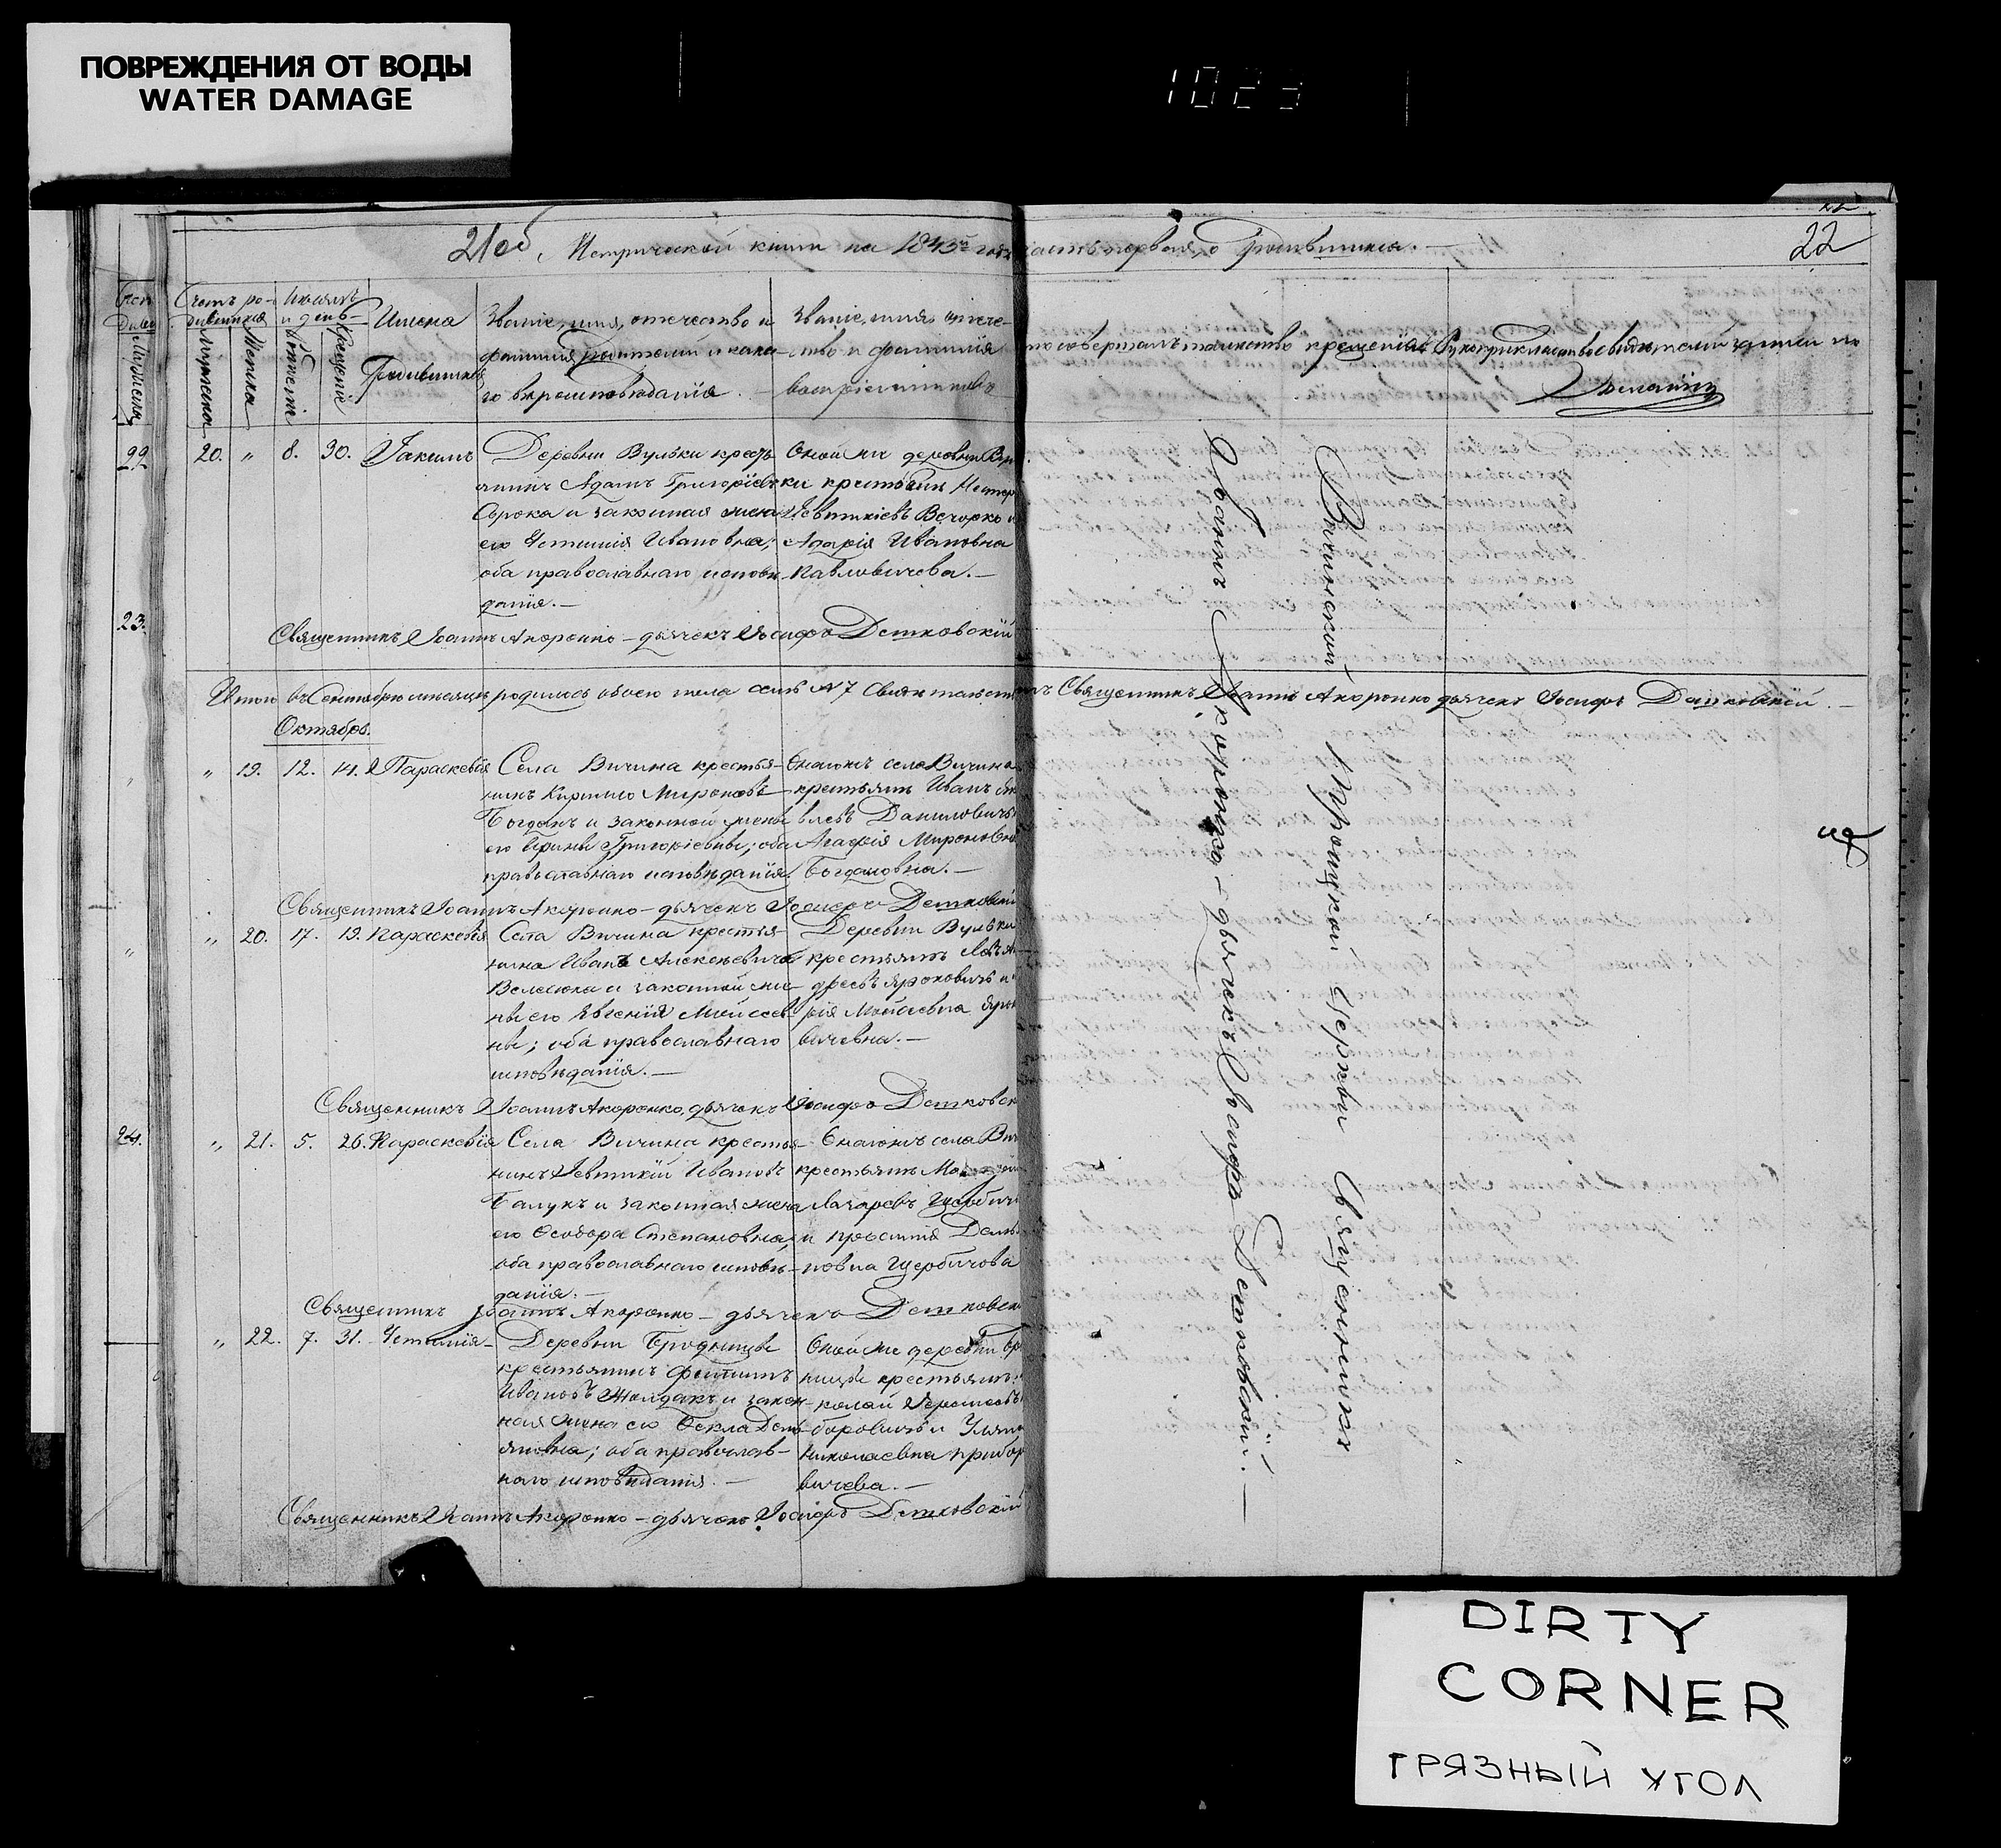 ПОВРЕЖДЕНИЯ ОТ ВОДЫ
WATER DAMAGE
1023
21об Метрической книги на 1843й годъ часть первая, о родившихся.
22
Счетъ родившихся
Мѣсяцъ и день
Имена родившихся
Званіе, имя, отечество и фамилія родителей и какого вѣроисповѣданія.
Званіе, имя, отечество и фамилія воспріемниковъ
Кто совершалъ таинство крещенія
Рукоприкладство свидѣтелей записи по желанію
Мужеска
Женска
Рожденія
Крещенія
20. " 8. 30. Іакимъ
Деревни Вульки кресть
янинъ Адамъ Григоріевъ
Сорока и законная жена
его Устинія Ивановна;
оба православнаго исповѣ
данія.—
Оной же деревни Вуль
ки крестьянинъ Нестер
Іевтихіевъ Вечорко и
Адарія Ивановна
Павловичева.—
23.
Священникъ Іоаннъ Акоронко – дьячекъ Іосифъ Детковскій
Итого въ Сентябрѣ мѣсяцѣ родилось обоего пола семь № 7 Священникъ Іоаннъ Акоронко дьячекъ Іосифъ Детковскій.—
Октябрь.
" 19. 12. 14. Параскевія
Села Вичина крестья-
нинъ Кирилло Мироновъ
Богданъ и законной жены
его Ирины Григоріевны; оба
православнаго исповѣданія.
Онагожъ села Вичина
крестьянинъ Иванъ Як
влевъ Даниловичъ
Агафія Миронов
Богдановна.—
Священникъ Іоаннъ Акоронко – дьячекъ Іосифъ Детковскій
" 20. 17. 19. Параскевія
Села Вичина крестья-
нина Иванъ Алексѣевича
Велесюка и законной же-
ны его Евгенія Моисеев-
ны; оба православнаго
исповѣданія.—
Деревни Вульки
крестьянинъ Левъ Ан
дреевъ Яроховичъ и
рія Моисеевна Яро
вичевна.—
Священникъ Іоаннъ Акоронко, дьячекъ Іосифъ Детковск
24.
" 21. 5. 26. Параскевія
Села Вичина крестья-
нинъ Іевтихій Ивановъ
Балукъ и законная жена
его Ѳеодора Степановна,
оба православнаго исповѣ-
данія.—
Онагожъ села Вич
крестьянинъ
Лазаревъ Щербич
и Просинія Демь
новна Щербичова
Священникъ Іоаннъ Акоронко – дьячекъ Детковск
" 22. 7. 31. Устинія—
Деревни Бродницы
крестьянинъ Филиппъ
Ивановъ Жолдакъ и закон-
ная жена его Ѳекла Демь-
яновна; оба православ-
наго исповѣданія.—
Оной же деревни Бр
ницы крестьянинъ
колай Герасимовъ
боровичъ и Ульян
Николаевна Прибор
вичева.—
Священникъ Іоаннъ Акоронко – дьячекъ Іосифъ Детковскій
Вичинской Троицкой Церкви Священникъ
Іоаннъ Акоронко – дьячекъ Іосифъ Детковскій.—
DIRTY
CORNER
ГРЯЗНЫЙ УГОЛ